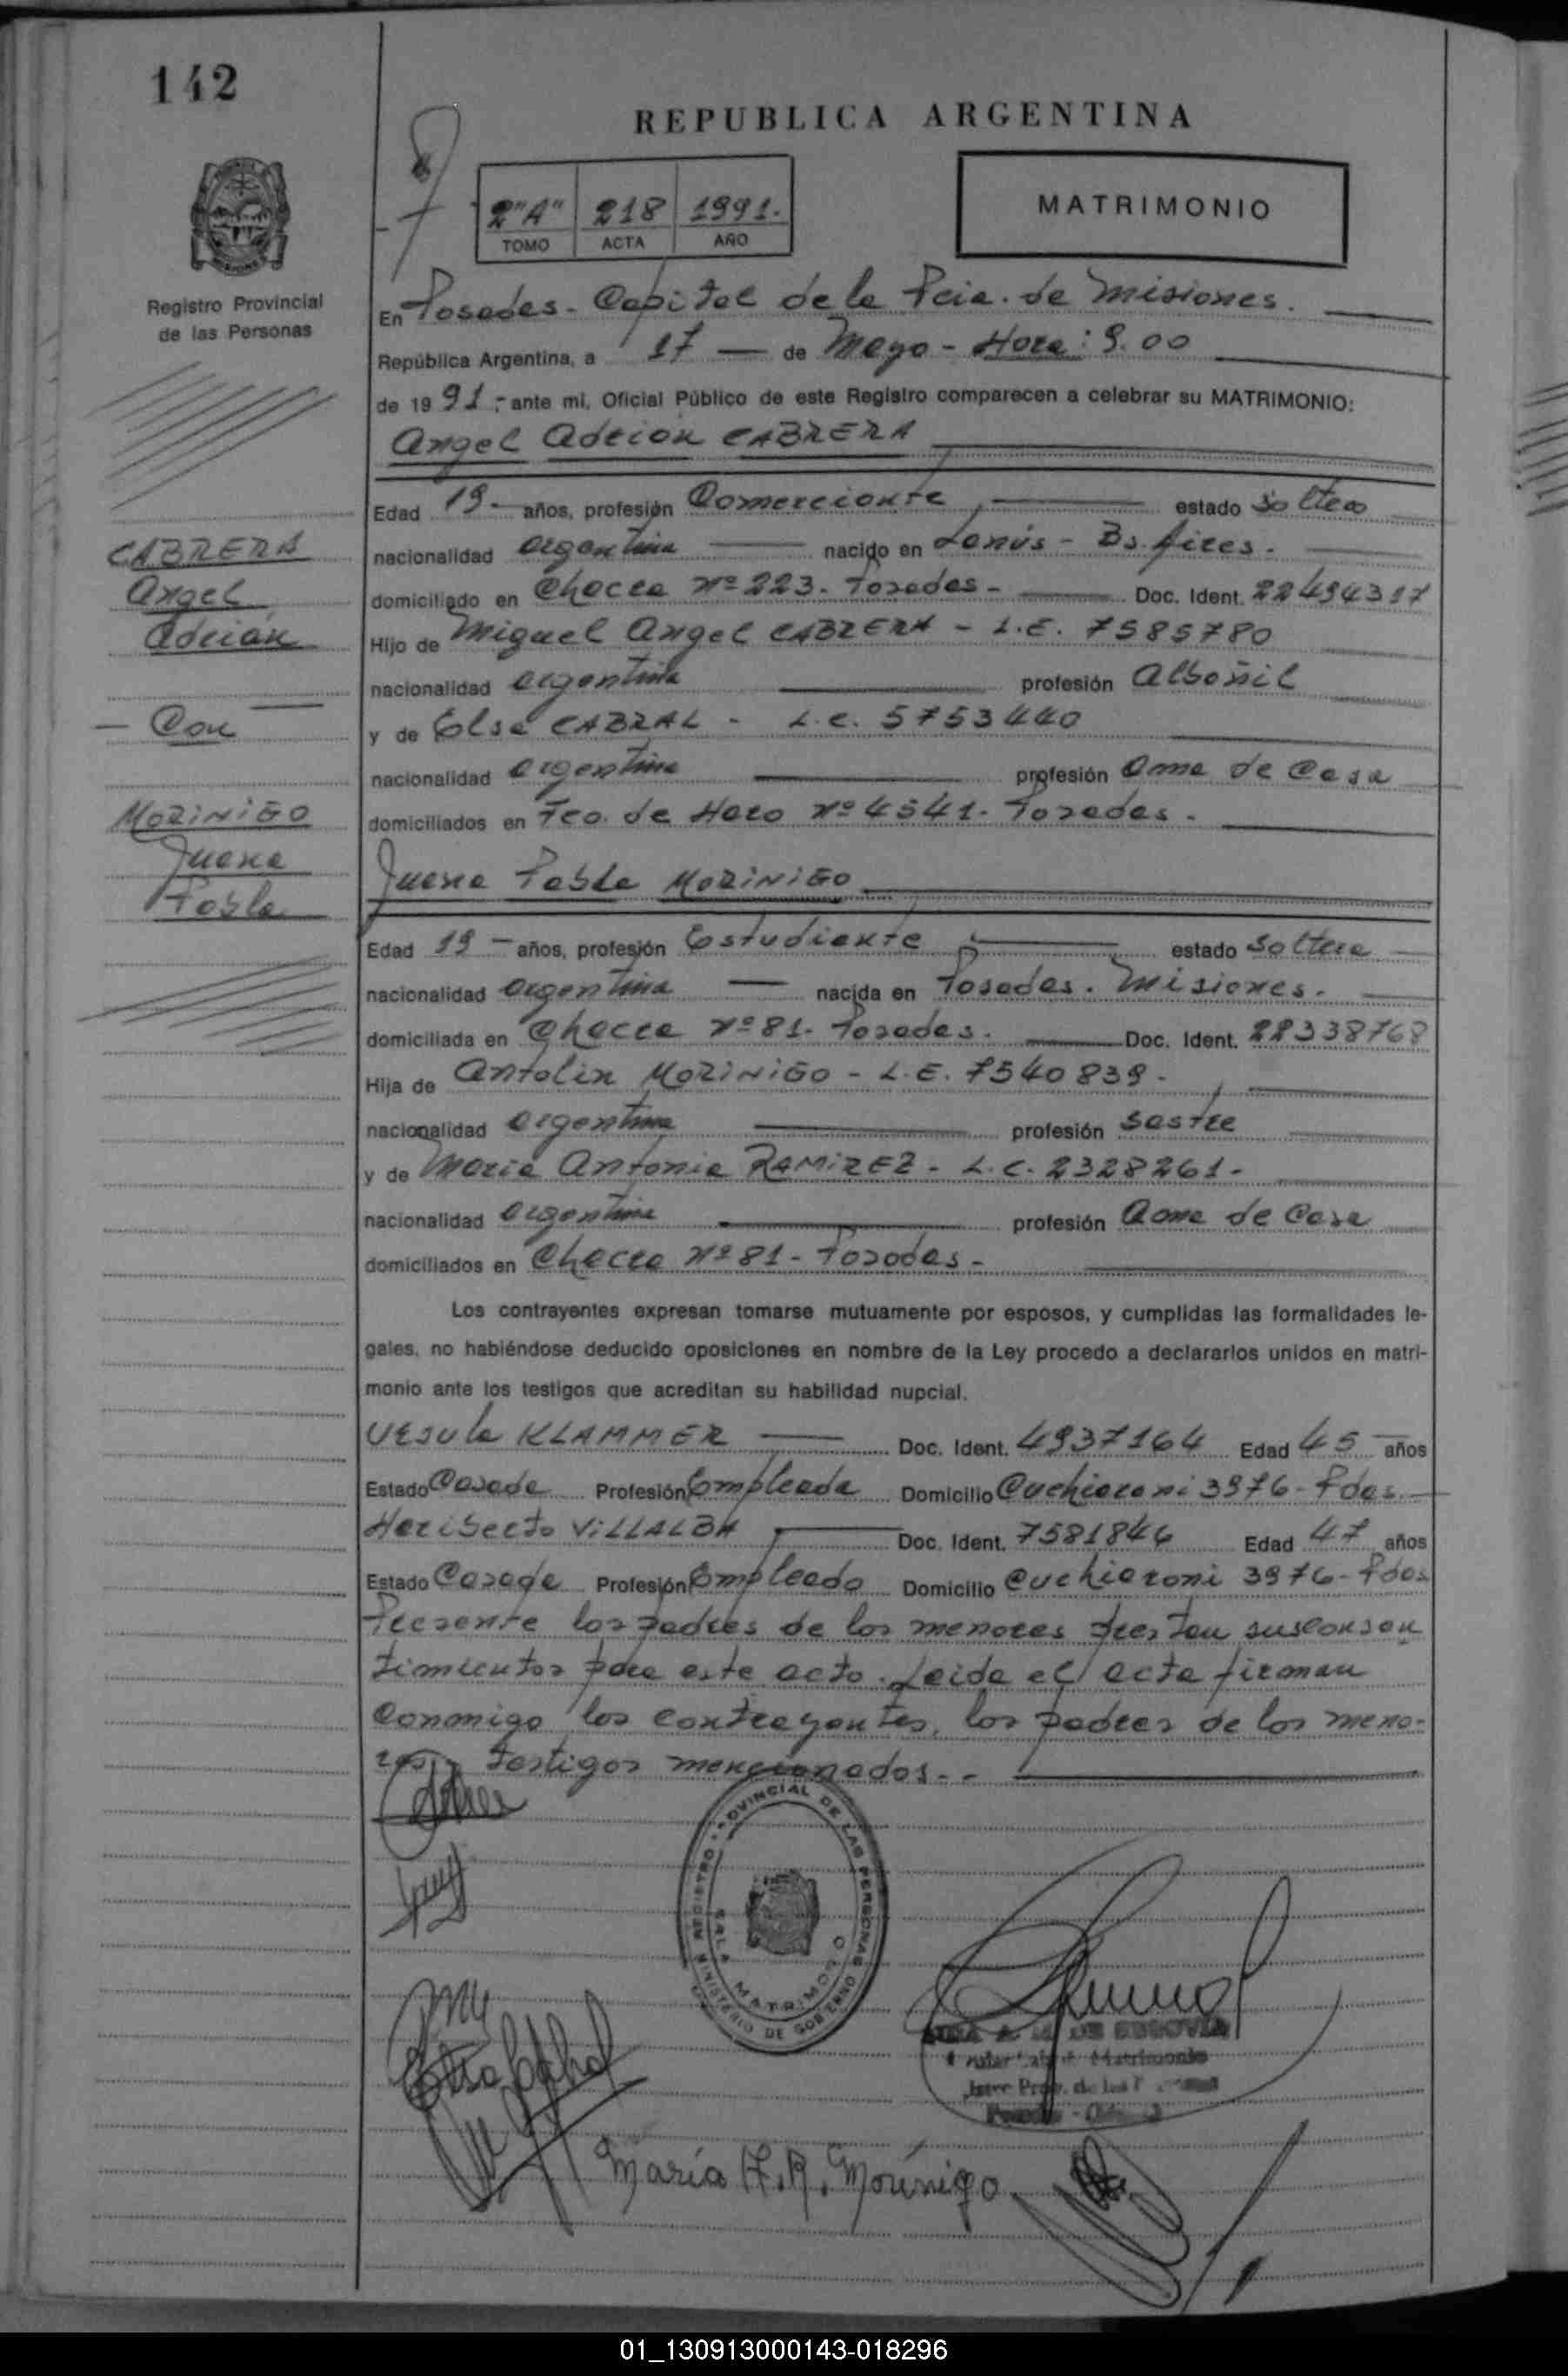 142
REPUBLICA ARGENTINA
2"A" 218 1991.-
TOMO ACTA AÑO
MATRIMONIO
Registro Provincial
de las Personas
En Posadas - Capital de la Pcia. de Misiones.
República Argentina, a 17 — de Mayo - Hora: 9.00
de 1991.- ante mi, Oficial Público de este Registro comparecen a celebrar su MATRIMONIO:
Angel Adrian CABRERA
Edad 19 - años, profesión Comerciante estado Soltero
nacionalidad argentina nacido en Lanús - Bs. Aires.
domiciliado en Chacra Nº 223. Posadas - Doc. Ident. 22494317
Hijo de Miguel Angel CABRERA - L.E. 7585780
nacionalidad argentina profesión Albañil
y de Elsa CABRAL - L.C. 5753440
nacionalidad argentina profesión Ama de Casa
domiciliados en Fco. de Haro Nº 4541. Posadas.
CABRERA
Angel
Adrián
— Con —
MORINIGO
Juana
Pabla
Juana Pabla MORINIGO
Edad 19 - años, profesión Estudiante estado Soltera
nacionalidad argentina nacida en Posadas. Misiones.
domiciliada en Chacra Nº 81. Posadas. Doc. Ident. 22338768
Hija de Antolin MORINIGO - L.E. 7540839.
nacionalidad argentina profesión Sastre
y de Maria Antonia RAMIREZ - L.C. 2328261.
nacionalidad argentina profesión Ama de Casa
domiciliados en Chacra Nº 81 - Posadas -
Los contrayentes expresan tomarse mutuamente por esposos, y cumplidas las formalidades le-
gales, no habiéndose deducido oposiciones en nombre de la Ley procedo a declararlos unidos en matri-
monio ante los testigos que acreditan su habilidad nupcial.
Ursula KLAMMER Doc. Ident. 4937164 Edad 45 años
Estado Casada Profesión Empleada Domicilio Cuchiaroni 3976 - Pdas.
Heriberto VILLALBA Doc. Ident. 7581846 Edad 47 años
Estado Casado Profesión Empleado Domicilio Cuchiaroni 3976 - Pdas
Presente los padres de los menores prestan sus consen
timientos para este acto. Leida el acta firman
conmigo los contrayentes, los padres de los meno-
res y testigos mencionados.-
REGISTRO PROVINCIAL DE LAS PERSONAS
SALA MATRIMONIO
MINISTERIO DE GOBIERNO
Elsa Cabral
DE SEGOVIA
Matrimonio
María A. R. Morínigo
01_130913000143-018296